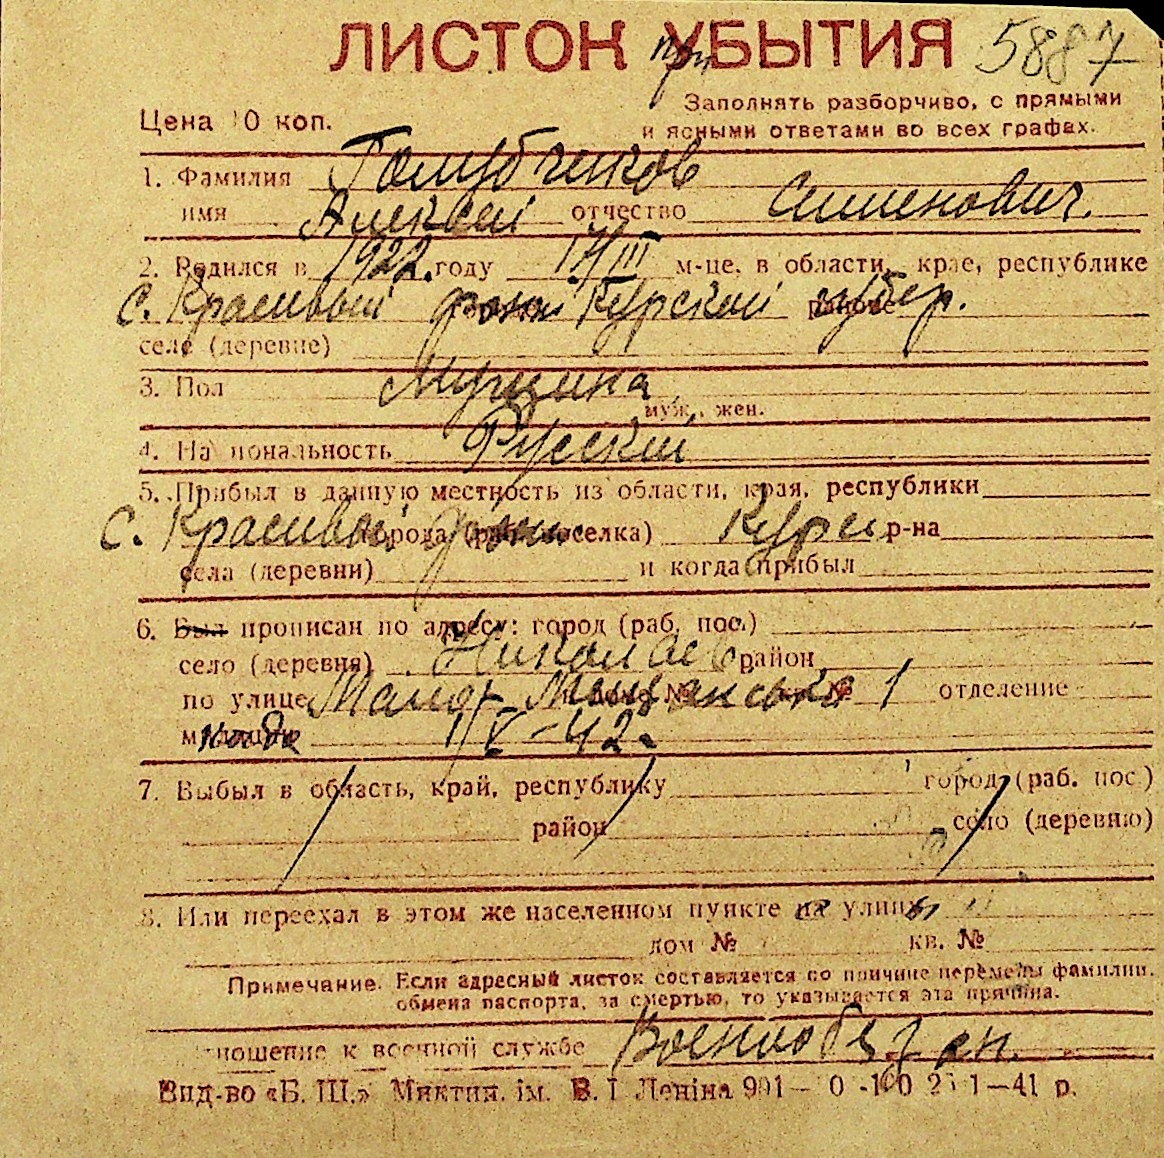 ЛИСТОК УБЫТИЯ при 5887
Цена 0 коп.
Заполнять разборчиво, с прямыми
и ясными ответами во всех графах.
1. Фамилия Голубченков
имя Алексей отчество Сименович.
2. Родился в 1922. году 17/III м-це, в области, крае, республике
с. Красивый Курской губер. районе
селе (деревне)
3. Пол Мущина
муж., жен.
4. Национальность Русский
5. Прибыл в данную местность из области, края, республики
с. Красивый города (раб. поселка) Курск р-на
села (деревни) и когда прибыл
6. Был прописан по адресу: город (раб. пос.)
село (деревня) Николаев район
по улице Малая № № 1 отделение
милиции когда 1/V-42.
7. Выбыл в область, край, республику город (раб. пос.)
район село (деревню)
8. Или переехал в этом же населенном пункте на улицу
дом № кв. №
Примечание. Если адресный листок составляется по причине перемены фамилии,
обмена паспорта, за смертью, то указывается эта причина.
Отношение к военной службе Военнообязан.
Вид-во «Б. Ш.» Микти. ім. В. І Леніна 1—41 р.